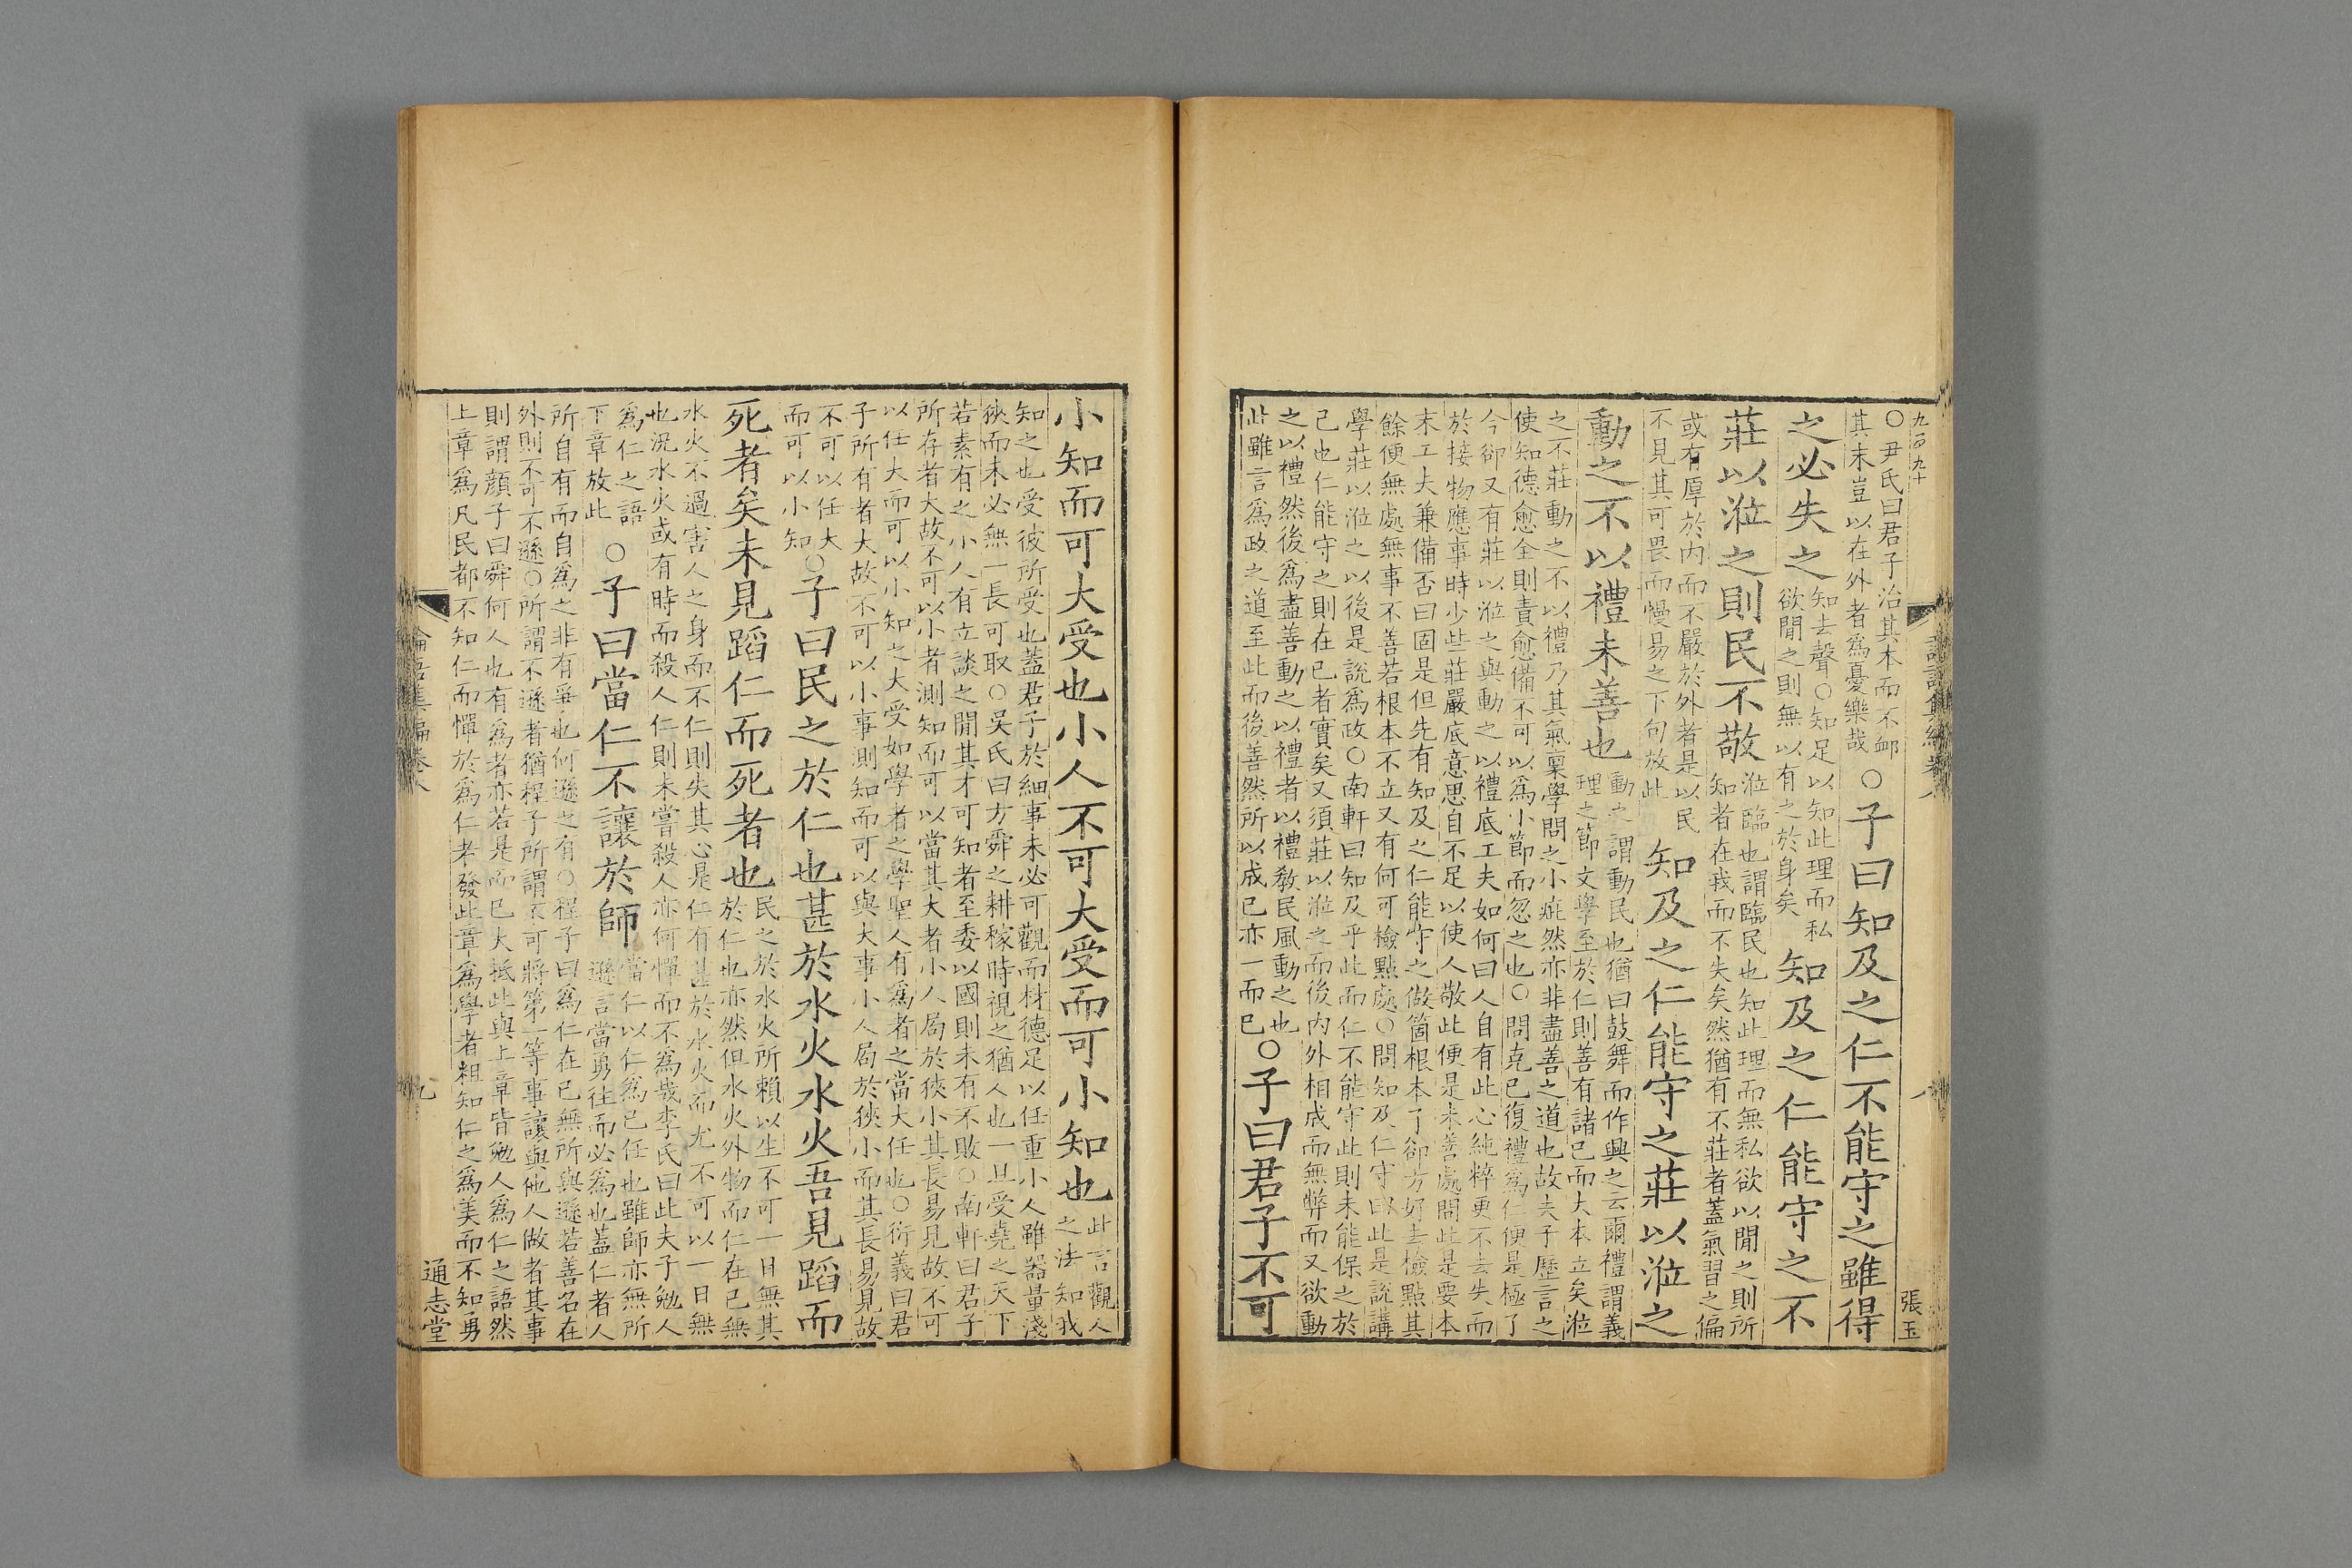 九百九十
張玉
〇尹氏曰君子治其本而不䘏
其末豈以在外者爲憂樂哉
〇子曰知及之仁不能守之雖得
之必失之
知去聲〇知足以知此理而私
欲間之則無以有之於身矣
知及之仁能守之不
莊以涖之則民不敬
涖臨也謂臨民也知此理而無私欲以間之則所
知者在我而不失矣然猶有不莊者蓋氣習之偏
或有厚於内而不嚴於外者是以民
不見其可畏而慢易之下句放此
知及之仁能守之莊以涖之
動之不以禮未善也
動之謂動民也猶曰鼓舞而作興之云爾禮謂義
理之節文學至於仁則善有諸已而大本立矣涖
之不莊動之不以禮乃其氣稟學問之小疵然亦非盡善之道也故夫子歷言之
使知德愈全則責愈備不可以爲小節而忽之也〇問克已復禮爲仁便是極了
今卻又有莊以涖之與動之以禮底工夫如何曰人自有此心純粹更不去失而
於接物應事時少些莊嚴底意思自不足以使人敬此便是未善處問此是要本
末工夫兼備否曰固是但先有知及之仁能守之做箇根本了卻方好去檢點其
餘便無處無事不善若根本不立又有何可檢點處〇問知及仁守曰此是說講
學莊以涖之以後是說爲政〇南軒曰知及乎此而仁不能守此則未能保之於
己也仁能守之則在已者實矣又須莊以涖之而後内外相成而無弊而又欲動
之以禮然後爲盡善動之以禮者以禮教民風動之也
此雖言爲政之道至此而後善然所以成已亦一而已
〇子曰君子不可
小知而可大受也小人不可大受而可小知也
此言觀人
之法知我
知之也受彼所受也蓋君子於細事未必可觀而材德足以任重小人雖器量淺
狹而未必無一長可取〇吳氏曰方舜之耕稼時視之猶人也一旦受堯之天下
若素有之小人有立談之間其才可知者至委以國則未有不敗〇南軒曰君子
所存者大故不可以小者測知而可以當其大者小人局於狹小其長易見故不可
以任大而可以小知之大受如學者之學聖人有爲者之當大任也〇衍義曰君
子所有者大故不可以小事測知而可以與大事小人局於狹小而其長易見故
不可以任大
而可以小知
〇子曰民之於仁也甚於水火水火吾見蹈而
死者矣未見蹈仁而死者也
民之於水火所賴以生不可一日無其
於仁也亦然但水火外物而仁在已無
水火不過害人之身而不仁則失其心是仁有甚於水火而尤不可以一日無
也況水火或有時而殺人仁則未嘗殺人亦何憚而不爲哉李氏曰此夫子勉人
爲仁之語
下章放此
〇子曰當仁不讓於師
當仁以仁爲已任也雖師亦無所
遜言當勇往而必爲也蓋仁者人
所自有而自爲之非有爭也何遜之有〇程子曰爲仁在已無所與遜若善名在
外則不可不遜〇所謂不遜者猶程子所謂不可將第一等事讓與他人做者其事
則謂顔子曰舜何人也有爲者亦若是而已大抵此與上章皆勉人爲仁之語然
上章爲凡民都不知仁而憚於爲仁者發此章爲學者粗知仁之爲美而不知勇
論語集編卷八
九
通志堂